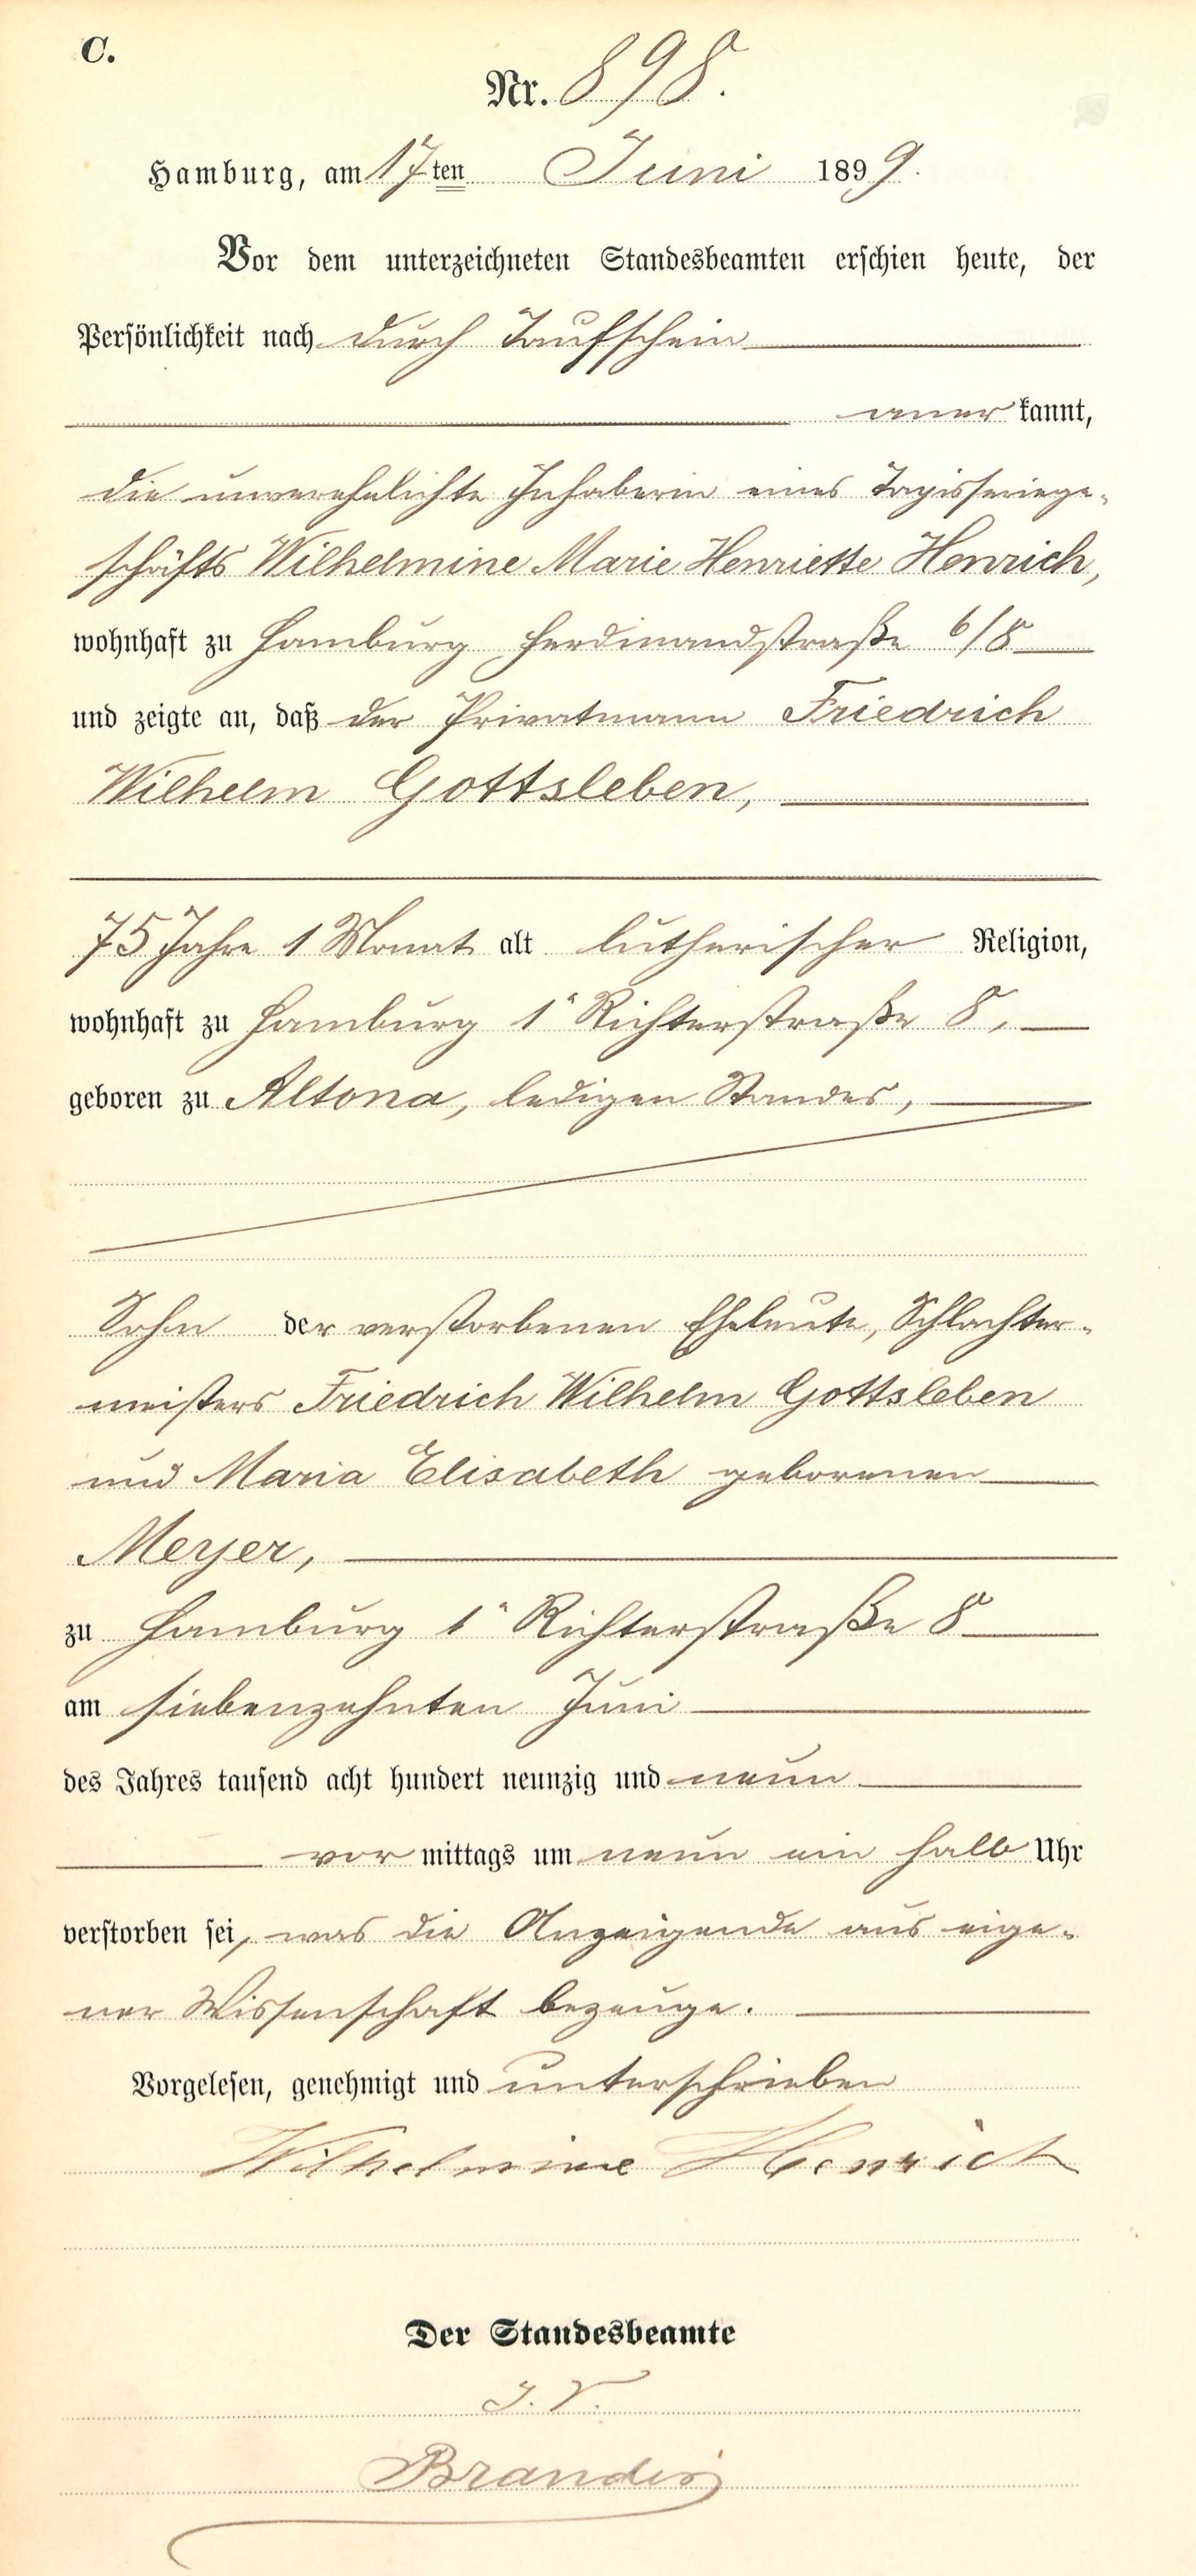 C.
Nr. 898.
Hamburg, am 17ten Juni 1899.
Vor dem unterzeichneten Standesbeamten erschien heute, der
Persönlichkeit nach durch Taufschein
aner kannt,
die unverehelichte Inhaberin eines Tapisseriege-
schäfts Wilhelmine Marie Henriette Henrich,
wohnhaft zu Hamburg Ferdinandstraße 6/8
und zeigte an, daß der Privatmann Friedrich
Wilhelm Gottsleben,
75 Jahre 1 Monat alt lutherischer Religion,
wohnhaft zu Hamburg 1ᵉ Richterstraße 8,
geboren zu Altona, ledigen Standes,
Sohn der verstorbenen Eheleute, Schlachter-
meisters Friedrich Wilhelm Gottsleben
und Maria Elisabeth geborenen
Meyer,
zu Hamburg 1ᵉ Richterstraße 8
am siebenzehnten Juni
des Jahres tausend acht hundert neunzig und neun
vor mittags um neun ein halb Uhr
verstorben sei, was die Anzeigende aus eige-
ner Wissenschaft bezeuge.
Vorgelesen, genehmigt und unterschrieben
Wilhelmine Henrich
Der Standesbeamte
J. V.
Brandis